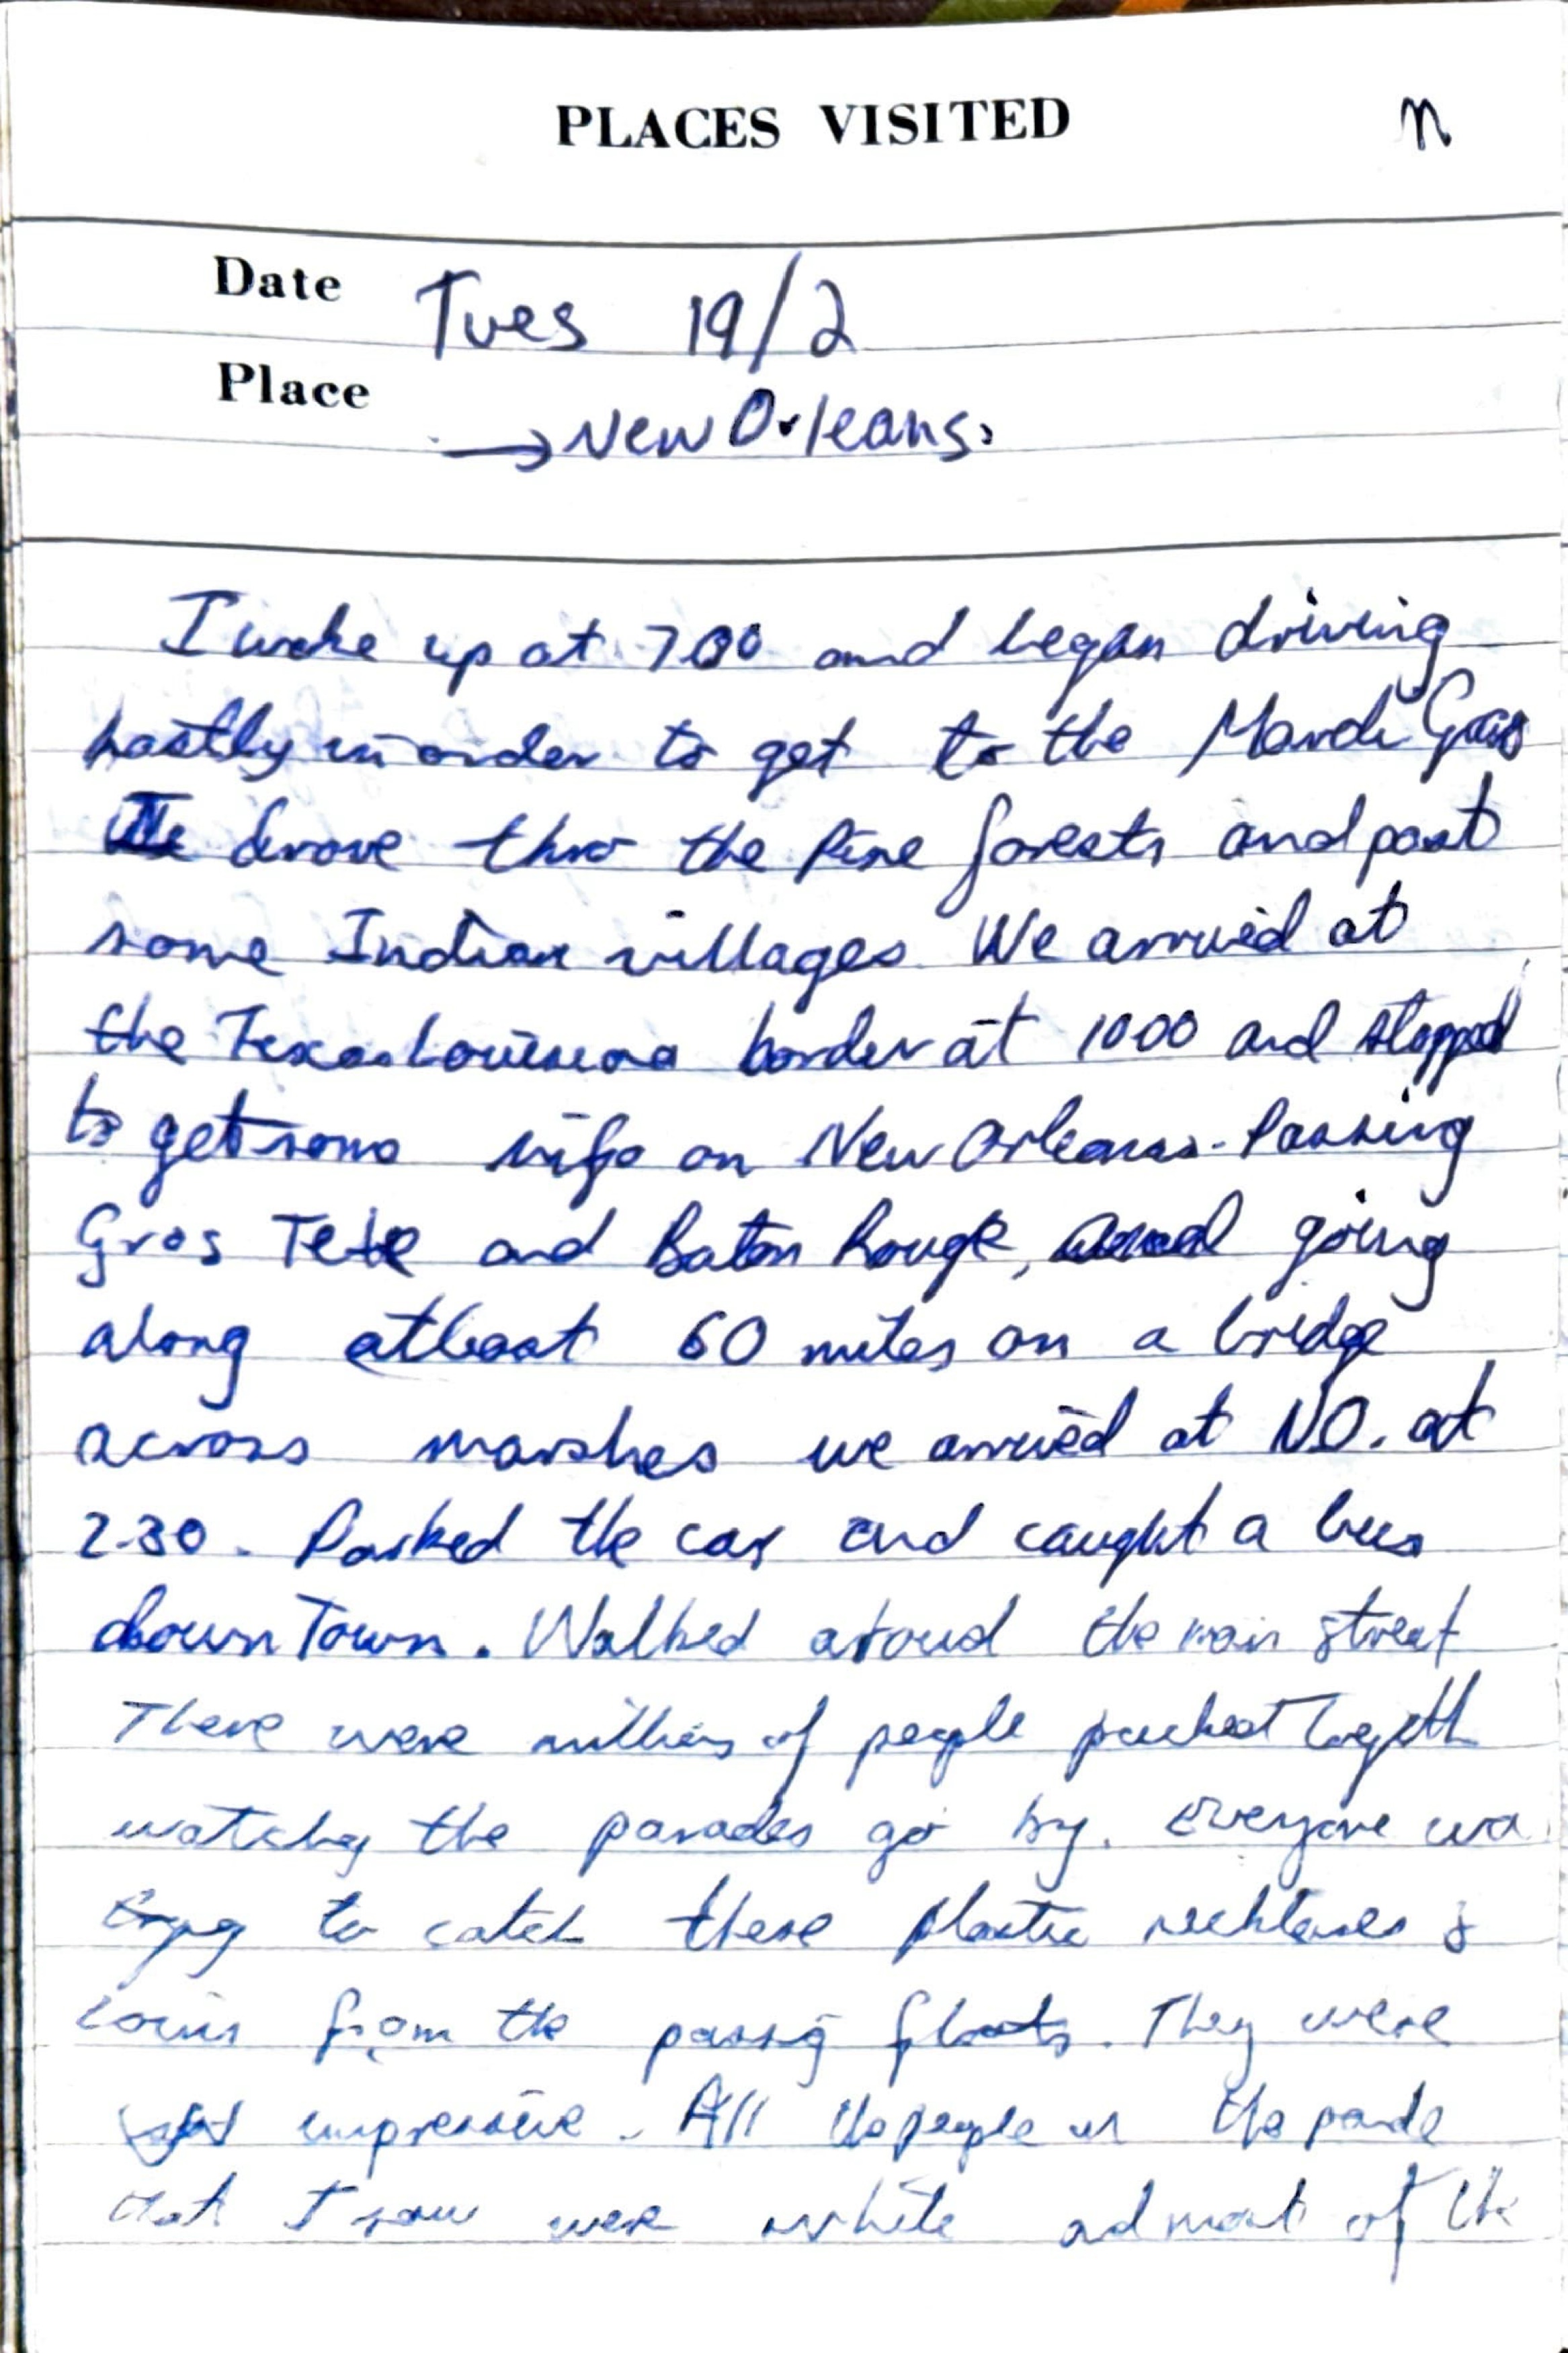 PLACES VISITED n
Date Tues 19/2
Place → New Orleans.
I woke up at 700 and began driving
hastly in order to get to the Mardi Gras
We drove thro the Pine forests and past
some Indian villages. We arrived at
the Texas Louisiana border at 1000 and stopped
to get some info on New Orleans. Passing
Gros Tete and Baton Rouge, and going
along atleast 60 miles on a bridge
across marshes we arrived at NO. at
2.30. Parked the car and caught a bus
down Town. Walked aroud the main street
There were millions of people packed togeth
watchg the parades go by. Everyone wa
tryg to catch these plastic necklaces &
coins from the passig floats. They were
impressive. All the people in the parade
that I saw were white ad most of the